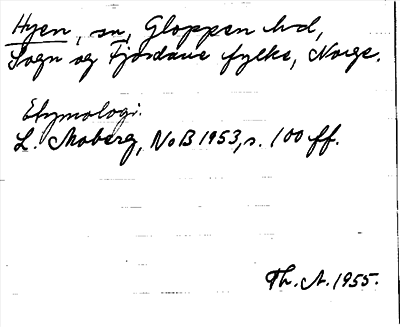 Hyen, sn, Gloppen hd,
Sogn og Fjordane fylke, Norge.
Etymologi.
L. Moberg, NoB 1953, s. 100 ff.
Th. A. 1955.